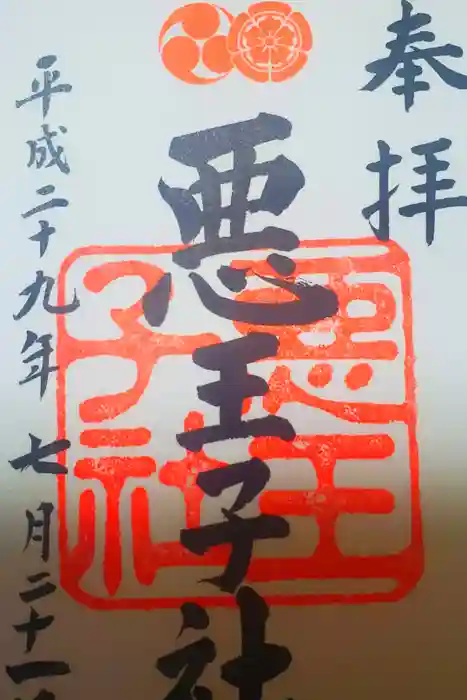 奉拝
悪王子社
悪王子社
平成二十九年七月二十一